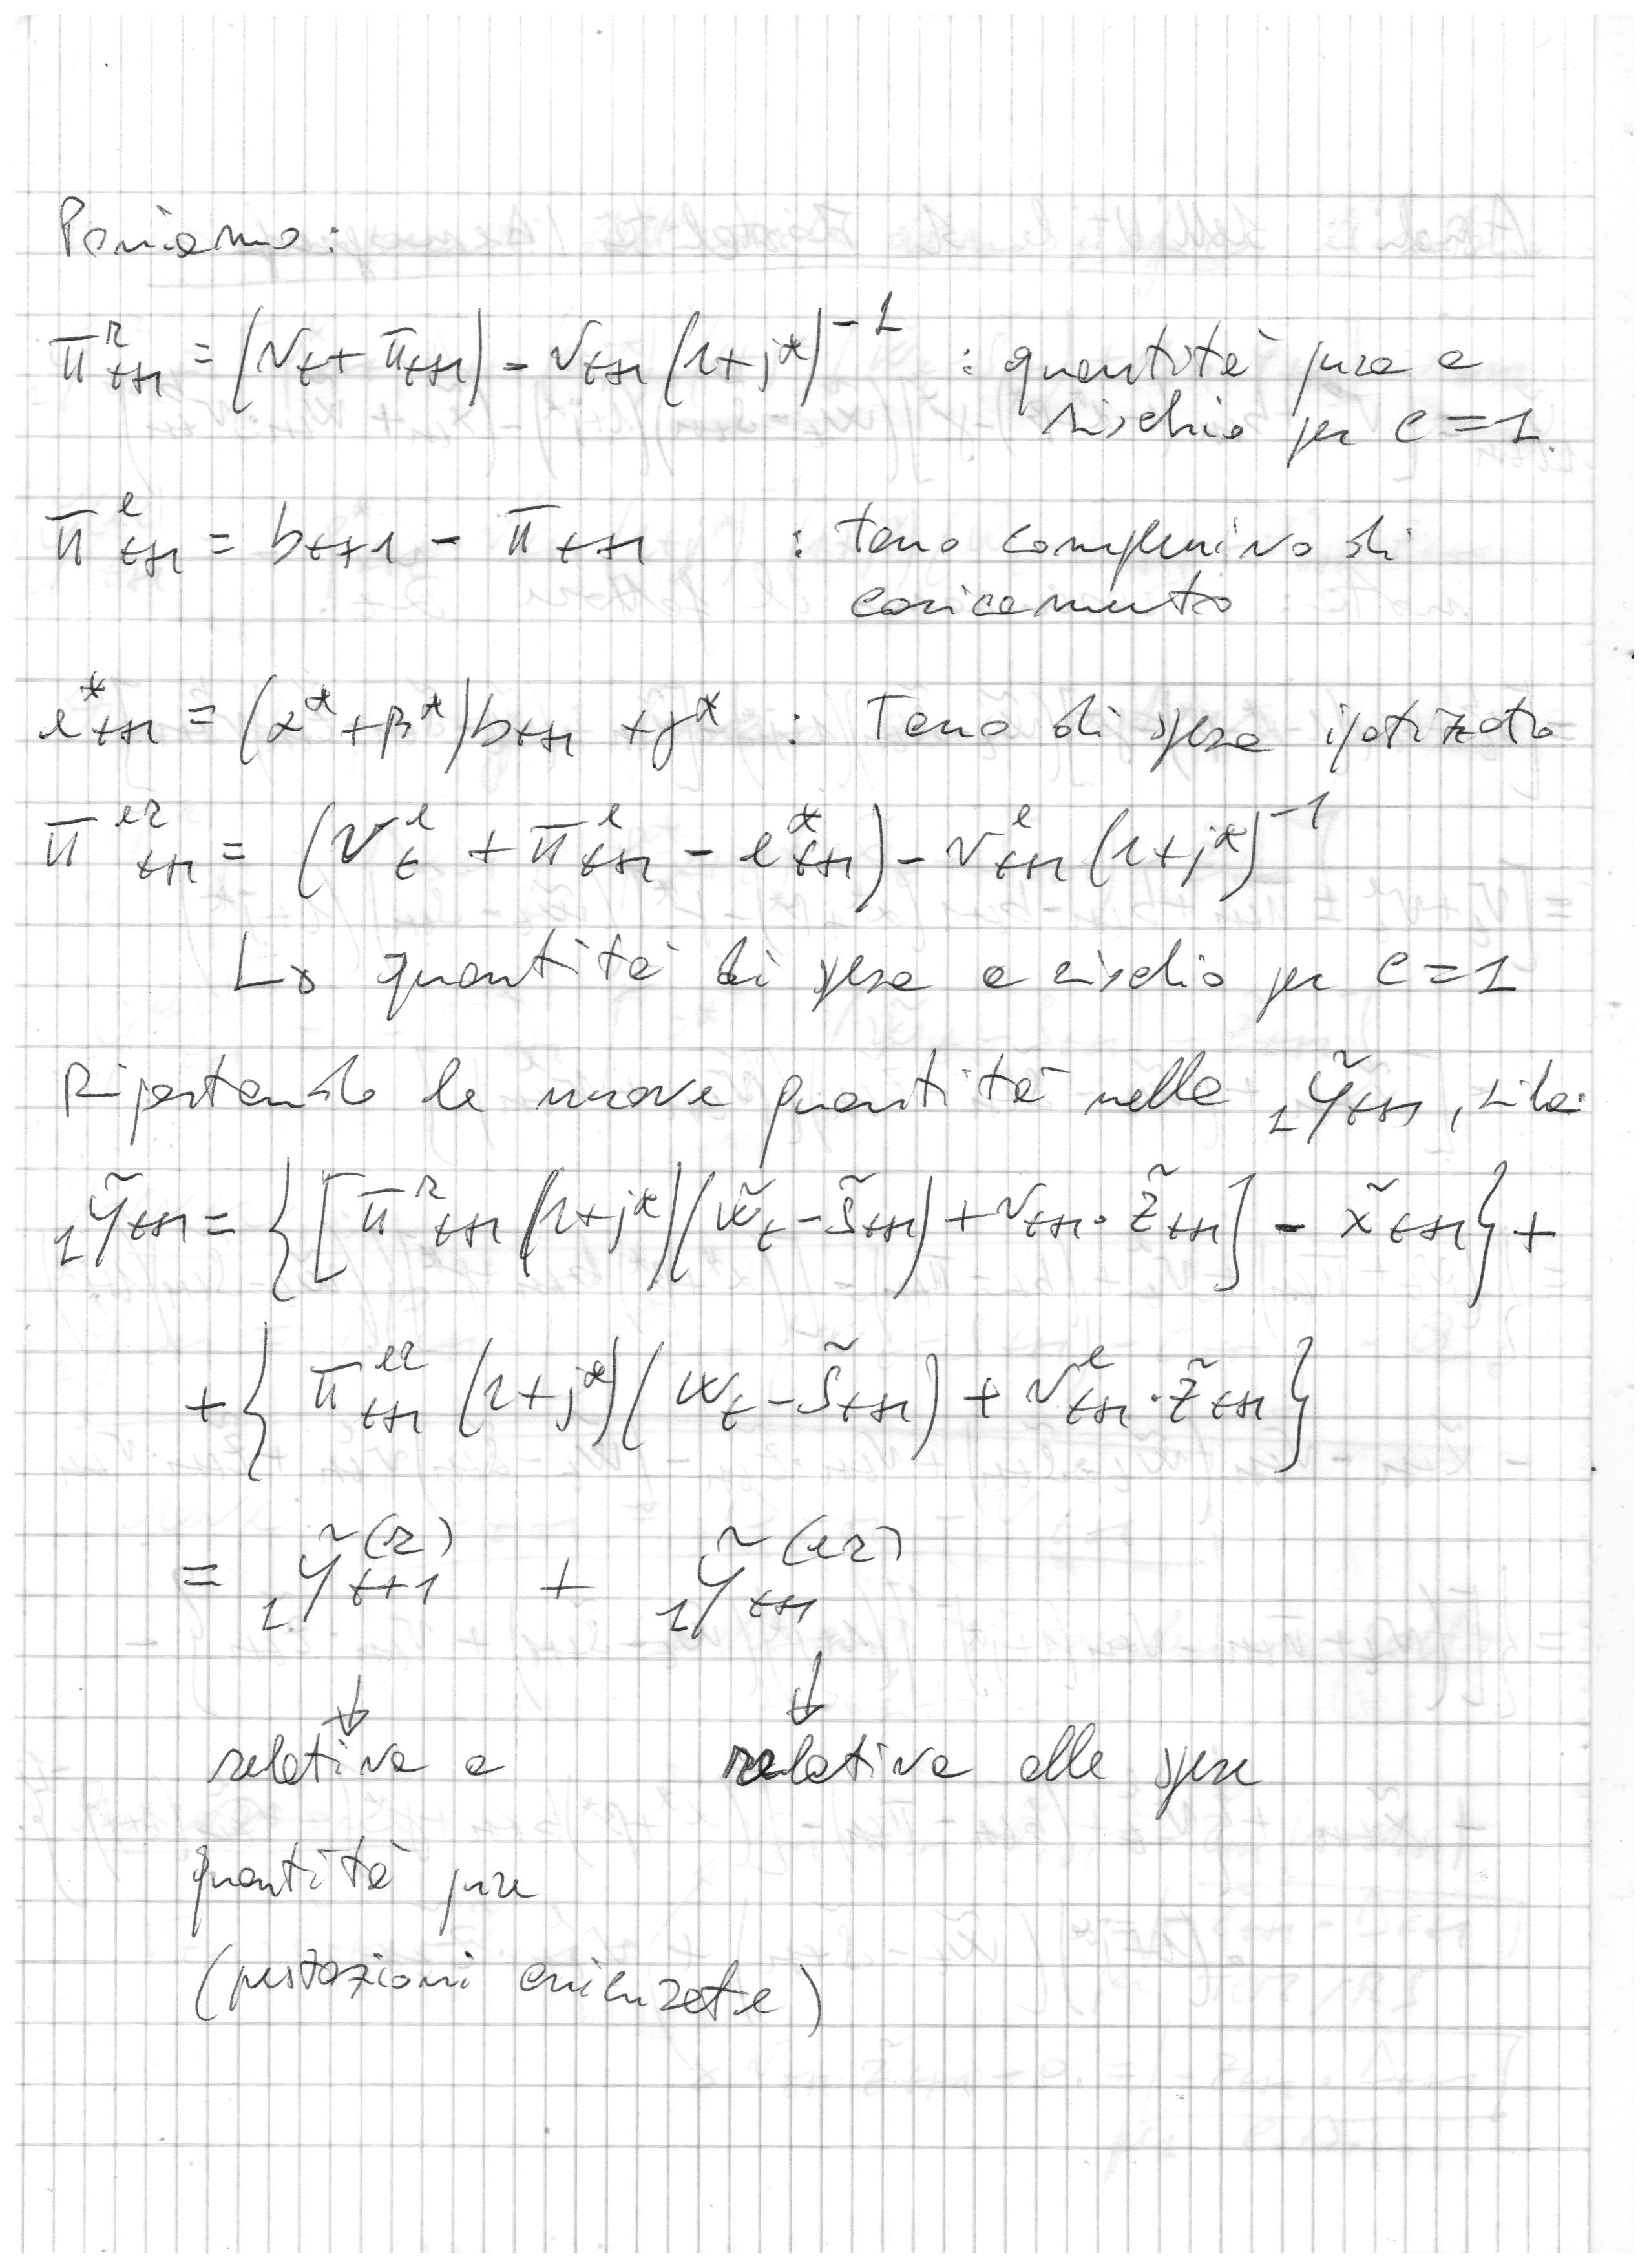 Poniamo:
π^r_{t+1} = (v_t + π_{t+1}) - v_{t+1} (1+j*)^{-1} : quantità pura a
rischio per C=1
π^e_{t+1} = b_{t+1} - π_{t+1} : tasso complessivo di
caricamento
e*_{t+1} = (α* + β*) b_{t+1} + γ* : Tasso di spesa ipotizzato
π^{er}_{t+1} = (v^e_t + π^e_{t+1} - e*_{t+1}) - v^e_{t+1} (1+j*)^{-1}
↳ quantità di spesa a rischio per C=1
Riportando le nuove quantità nella ₁ỹ_{t+1}, si ha:
₁ỹ_{t+1} = {[π^r_{t+1} (1+j*)(w̃_t - s̃_{t+1}) + v_{t+1} · z̃_{t+1}] - x̃_{t+1}} +
+ {π^{er}_{t+1} (1+j*)(w_t - s̃_{t+1}) + v^e_{t+1} · z̃_{t+1}}
= ₁ỹ^{(r)}_{t+1} + ₁ỹ^{(er)}_{t+1}
↓ ↓
relativa a relativa alle spese
quantità pure
(prestazioni assicurate)